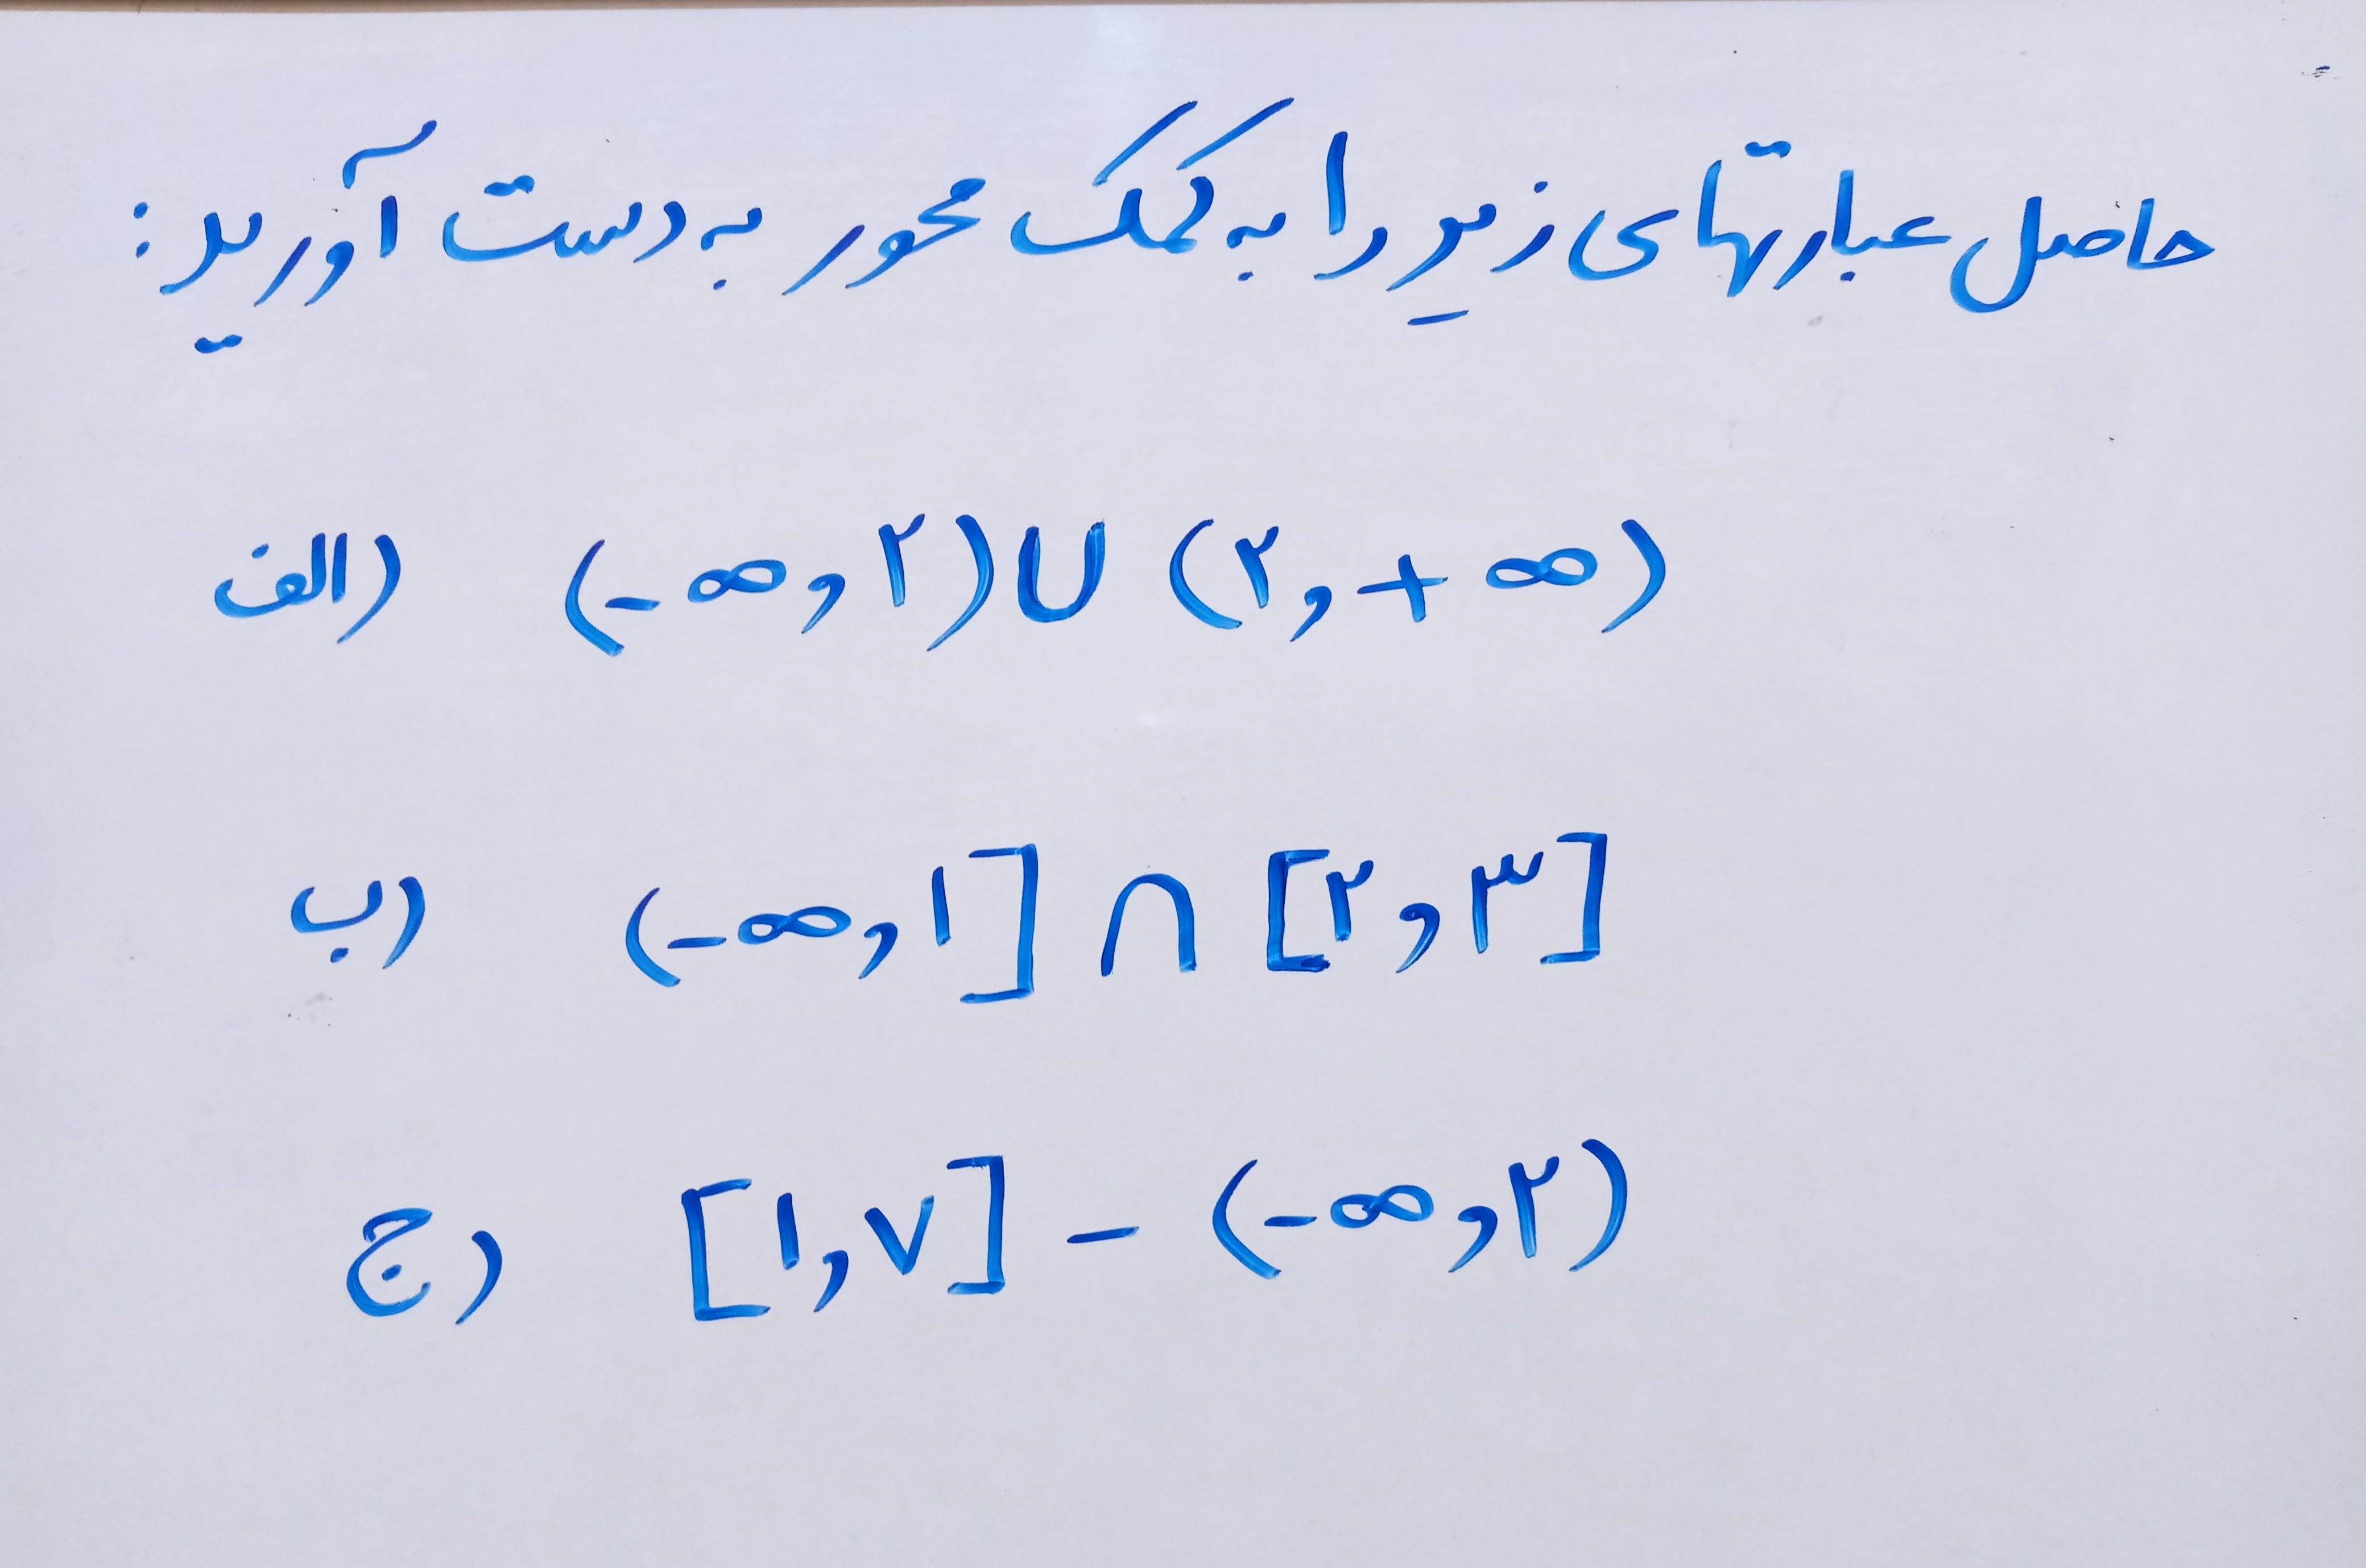 حاصل عبارتهای زیر را به کمک محور به دست آورید:
الف) (-∞,۲)∪(۲,+∞)
ب) (-∞,۱]∩[۲,۳]
ج) [۱,۷]-(-∞,۲)